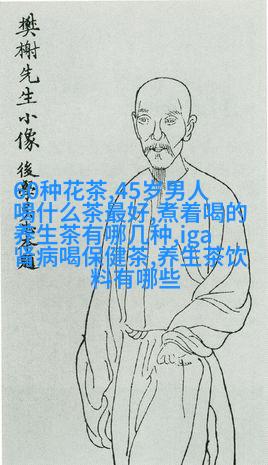 樊榭先生小像
後學
60种花茶,45岁男人
喝什么茶最好,煮着喝的
养生茶有哪几种,iga
肾病喝保健茶,养生茶饮
料有哪些